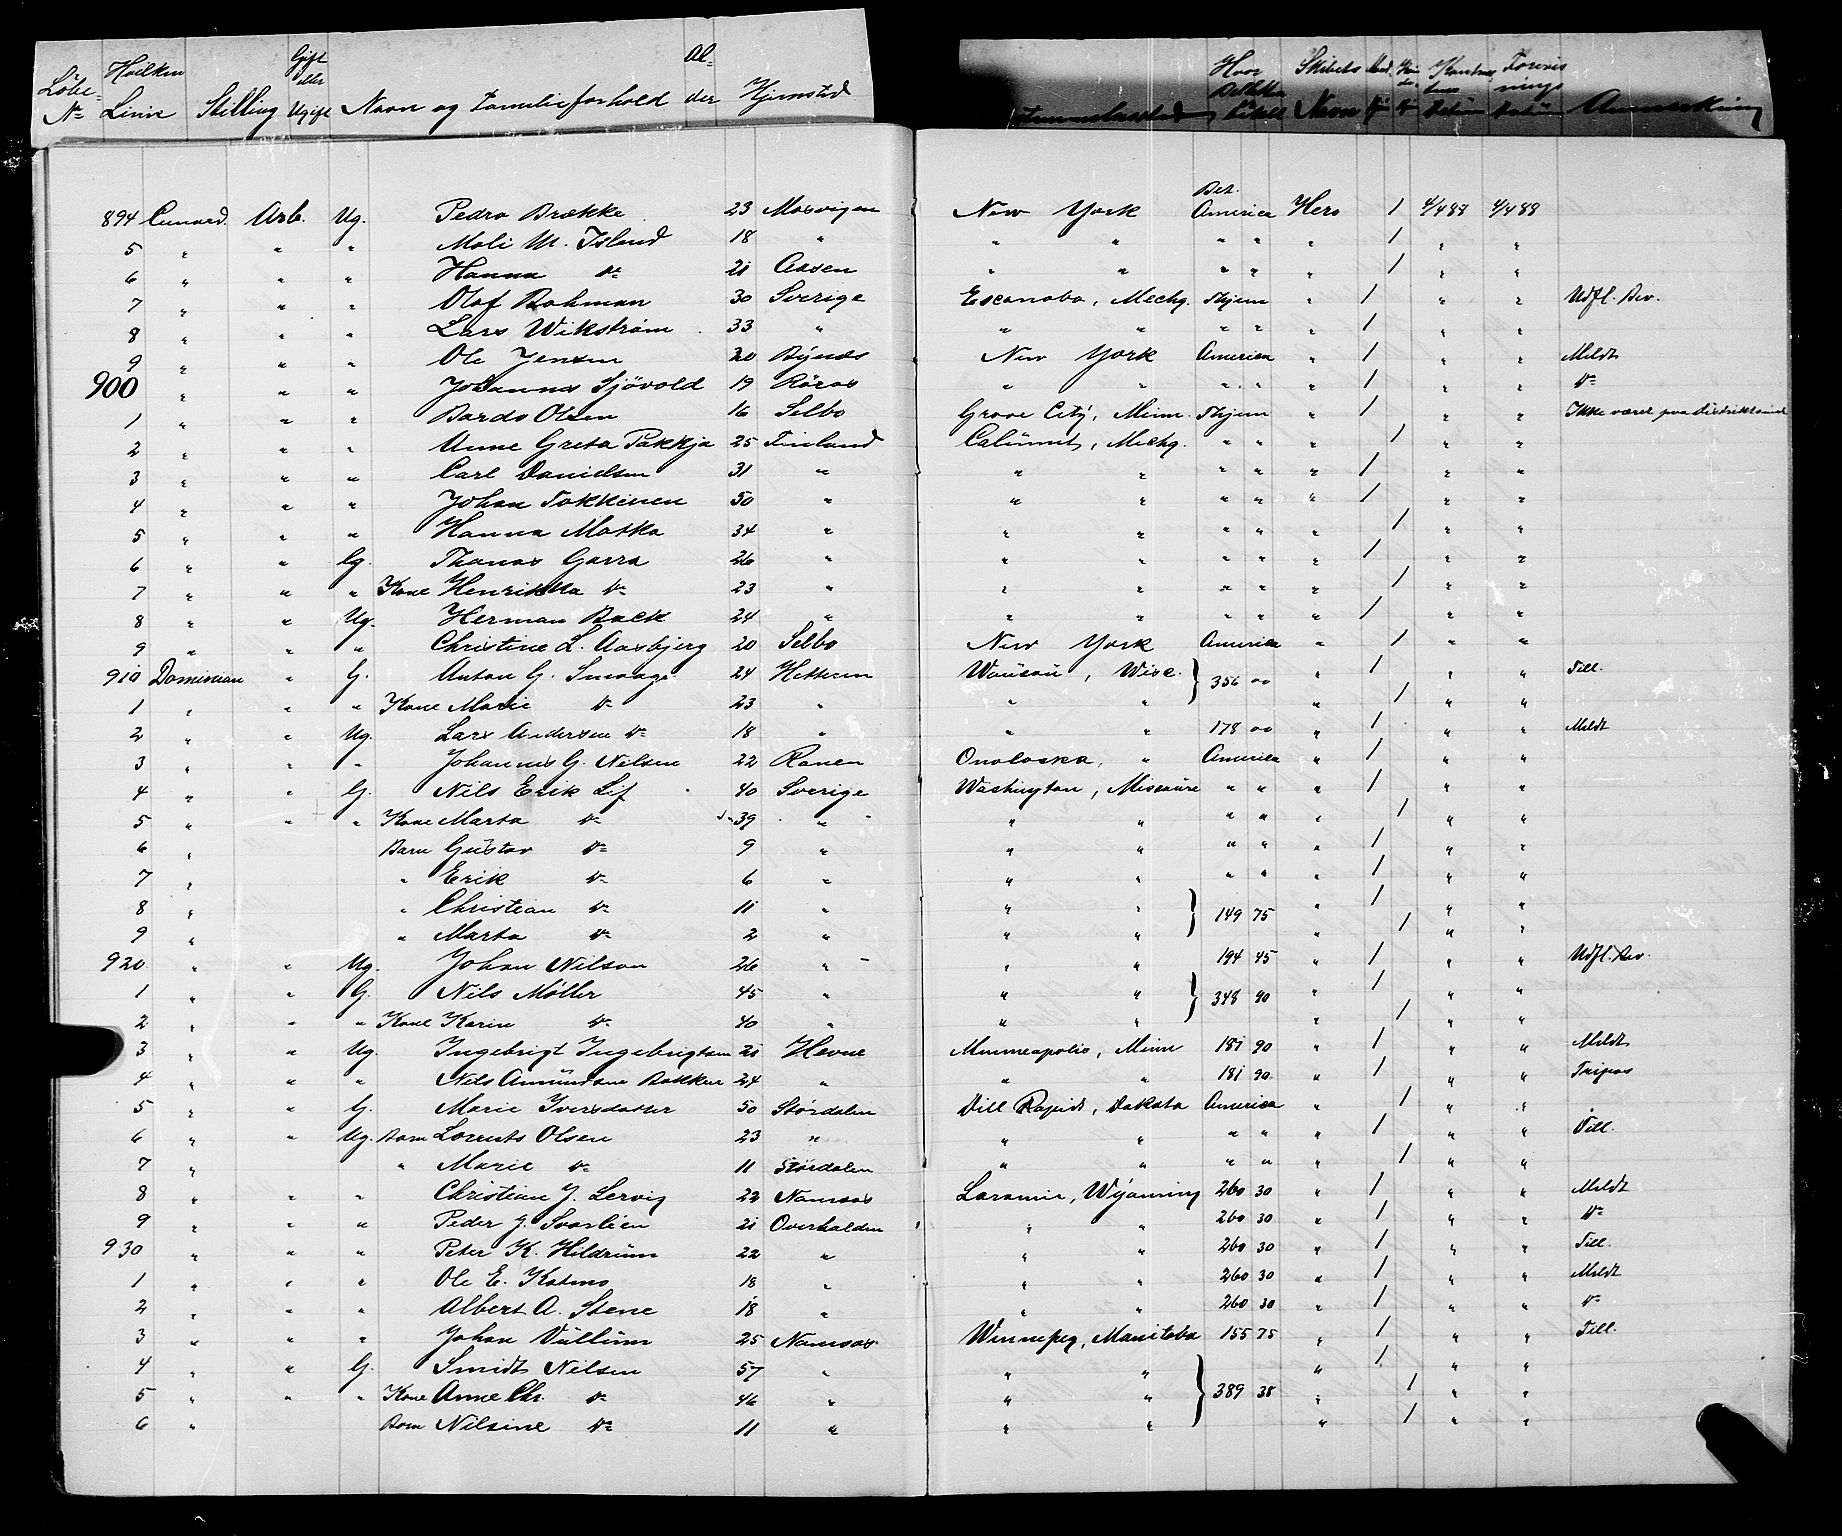 Löbe- Nr. Hvilken Linie Stilling Gift eller Ugift Navn og Familieforhold Alder Hjemsted Hvor Billetten Skibets Navn Anmærkning
894 Cunard. Arb. Ug. Pedro Brække 23 Mosvigen New York Bet. America Hero 1 4/4 88 4/4 88
5 " " " Moli M. Islend 18 " " " " " " 1 " "
6 " " " Hanna do 21 Aasen " " " " " 1 " "
7 " " " Olof Bohman 30 Sverige Escanaba, Mechg. Thjem " 1 " " Udfl. Bev.
8 " " " Lars Wikstrøm 33 " " " " " " 1 " "
9 " " " Ole Jensen 20 Bynæs New York America " 1 " " Meldt
900 " " " Johannes Sjövold 19 Röros " " " " " 1 " " do
1 " " " Bardo Olsen 16 Selbo Grove City, Minn. Thjem " 1 " " Ikke været paa
2 " " " Anne Greta Pakkja 25 Finland Calumet, Mechg. " " " 1 " "
3 " " " Carl Danielsen 31 " " " " " " 1 " "
4 " " " Johan Tokkinen 50 " " " " " " 1 " "
5 " " " Hanna Matka 34 " " " " " " 1 " "
6 " " G. Thomas Garra 26 " " " " " " 1 " "
7 " " " Kone Henrikka do 23 " " " " " " 1 " "
8 " " Ug. Herman Back 24 " " " " " " 1 " "
9 " " " Christine L. Aasbjerg 20 Selbo New York America " 1 " "
910 Dominion " G. Anton G. Smaage 24 Hitteren Wausau, Wisc. 356 00 " 1 " " Till.
1 " " " Kone Marie do 23 " " " " 1 " "
2 " " Ug. Lars Andersen do 18 " " " 178 00 " 1 " " Meldt
3 " " " Johannes G. Nilsen 22 Ranen Onalaska, " America " 1 " "
4 " " G. Nils Erik Lif 40 Sverige Washington, Missoure " " " 1 " "
5 " " " Kone Marta do 39 " " " " " " 1 " "
6 " Barn Gustav do 9 " " " " " " 1 " "
7 " " Erik do 6 " " " " " " 1 " "
8 " " Christian do 11 " " " 149 75 " 1 " "
9 " " Marta do 2 " " " " 1 " "
920 " " Ug. Johan Nilson 26 " " " 194 45 " 1 " " Udfl. Bev.
1 " " G. Nils Møller 45 " " " 348 90 " 1 " "
2 " " " Kone Karin do 40 " " " " 1 " "
3 " " Ug. Ingebrigt Ingebrigtsen 21 Hevne Minneapolis, Minn 181 90 " 1 " " Meldt
4 " " " Nils Amundsen Bakken 24 " " " 181 90 " 1 " " Tripos
5 " " G. Marie Iversdatter 50 Størdalen Dill Rapids, Dakota America " 1 " "
6 " " Ug. Barn Lorents Olsen 23 " " " " " " 1 " " Till.
7 " " Marie do 11 Størdalen " " " " " 1 " "
8 " " " Christian J. Lervig 22 Namsos Laramie, Wyoming 260 30 " 1 " " Meldt
9 " " " Peder J. Svarlien 21 Overhalden " " 260 30 " 1 " " do
930 " " " Peter K. Hildrum 22 " " " 260 30 " 1 " " Till.
1 " " " Ole E. Katmo 18 " " " 260 30 " 1 " " Meldt
2 " " " Albert A. Stene 18 " " " 260 30 " 1 " " do
3 " " " Johan Vullum 25 Namsos Winnepeg, Manitoba 155 75 " 1 " " Till.
4 " " G. Smidt Nilsen 57 " " " 389 38 " 1 " "
5 " " " Kone Anne Chr. do 46 " " " " 1 " "
6 " Barn Nilsine do 11 " " " " 1 " "